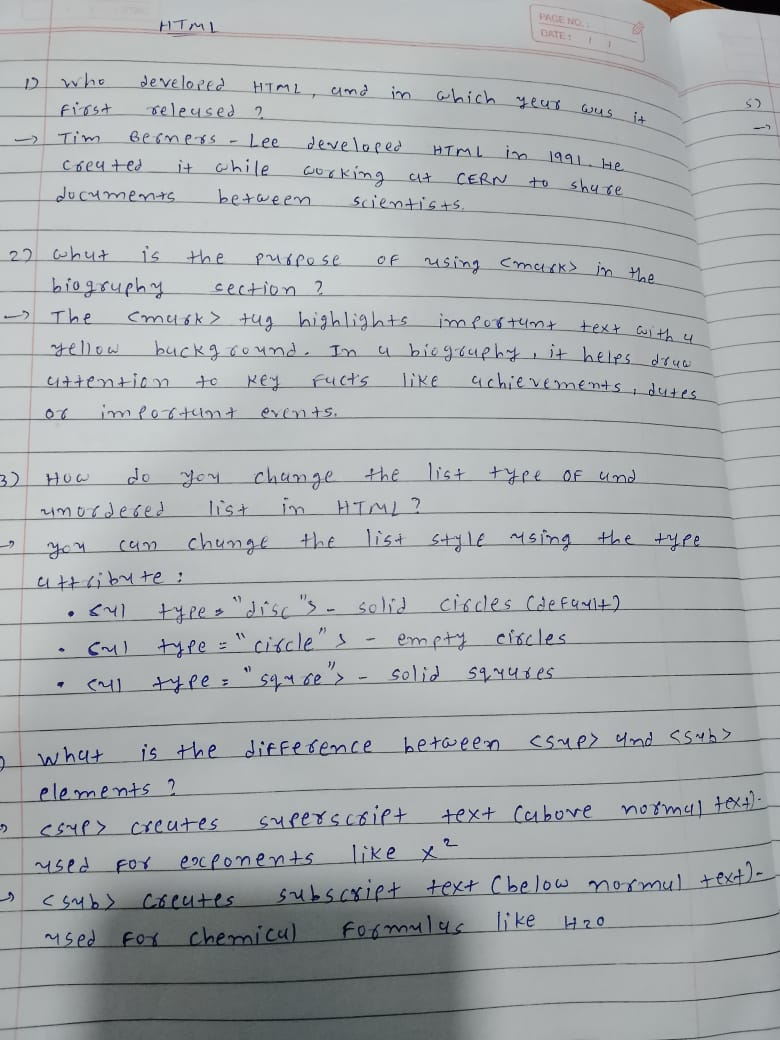 HTML
PAGE NO.:
DATE: / /
1) Who developed HTML, and in which year was it
first released ?
→ Tim Berners-Lee developed HTML in 1991. He
created it while working at CERN to share
documents between scientists.
2) what is the purpose of using <mark> in the
biography section ?
→ The <mark> tag highlights important text with a
yellow background. In a biography, it helps draw
attention to key facts like achievements, dates
or important events.
3) How do you change the list type of and
unordered list in HTML ?
→ you can change the list style using the type
attribute :
• <ul type="disc"> - solid circles (default)
• <ul type="circle"> - empty circles
• <ul type="squre"> - solid squares
What is the difference between <sup> and <sub>
elements ?
→ <sup> creates superscript text (above normal text)-
used for exponents like x²
→ <sub> creates subscript text (below normal text)-
used for chemical formulas like H2O
5)
→